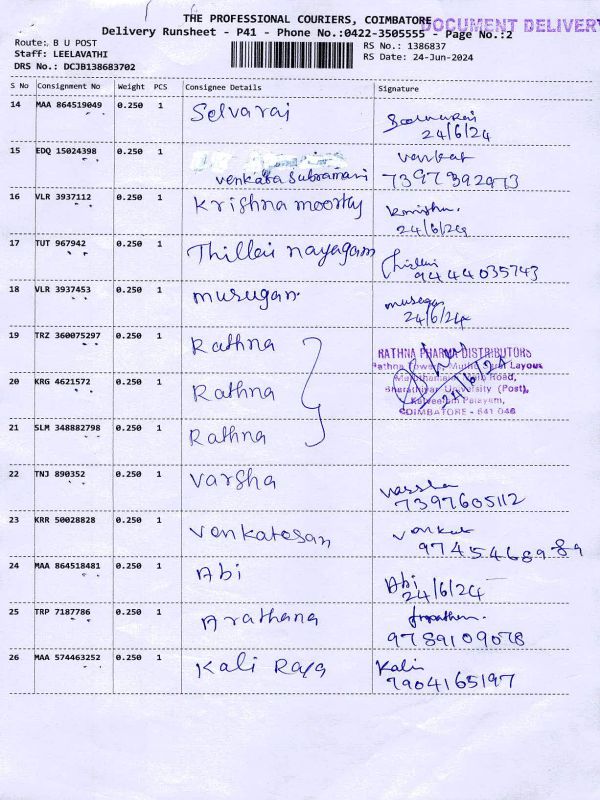 THE PROFESSIONAL COURIERS, COIMBATORE
DOCUMENT DELIVERY
Delivery Runsheet - P41 - Phone No.:0422-3505555 - Page No.:2
Route: B U POST
Staff: LEELAVATHI
DRS No.: DCJB138683702
RS No.: 1386837
RS Date: 24-Jun-2024
S No Consignment No Weight PCS Consignee Details Signature
14 MAA 864519049 0.250 1 Selvaraj
24/6/24
15 EDQ 15024398 0.250 1 venkata Subramani venkat
7397392973
16 VLR 3937112 0.250 1 Krishna moorthy Krishna.
24/6/24
17 TUT 967942 0.250 1 Thillai nayagam Thillai
9444035743
18 VLR 3937453 0.250 1 murugan murugan
24/6/24
19 TRZ 360075297 0.250 1 Rathna
20 KRG 4621572 0.250 1 Rathna
21 SLM 348882798 0.250 1 Rathna
RATHNA PHARMA DISTRIBUTORS
Rathna Towers, Layout
Road,
Bharathiyar University (Post),
Kalveeram Palayam,
COIMBATORE - 641 046
24/6/24
22 TNJ 890352 0.250 1 varsha varsha
7397605112
23 KRR 50028828 0.250 1 venkatesan venkat
24 MAA 864518481 0.250 1 Abi Abi
24/6/24
25 TRP 7187786 0.250 1 Arathana
9789109078
26 MAA 574463252 0.250 1 Kali Raja Kali
7904165197